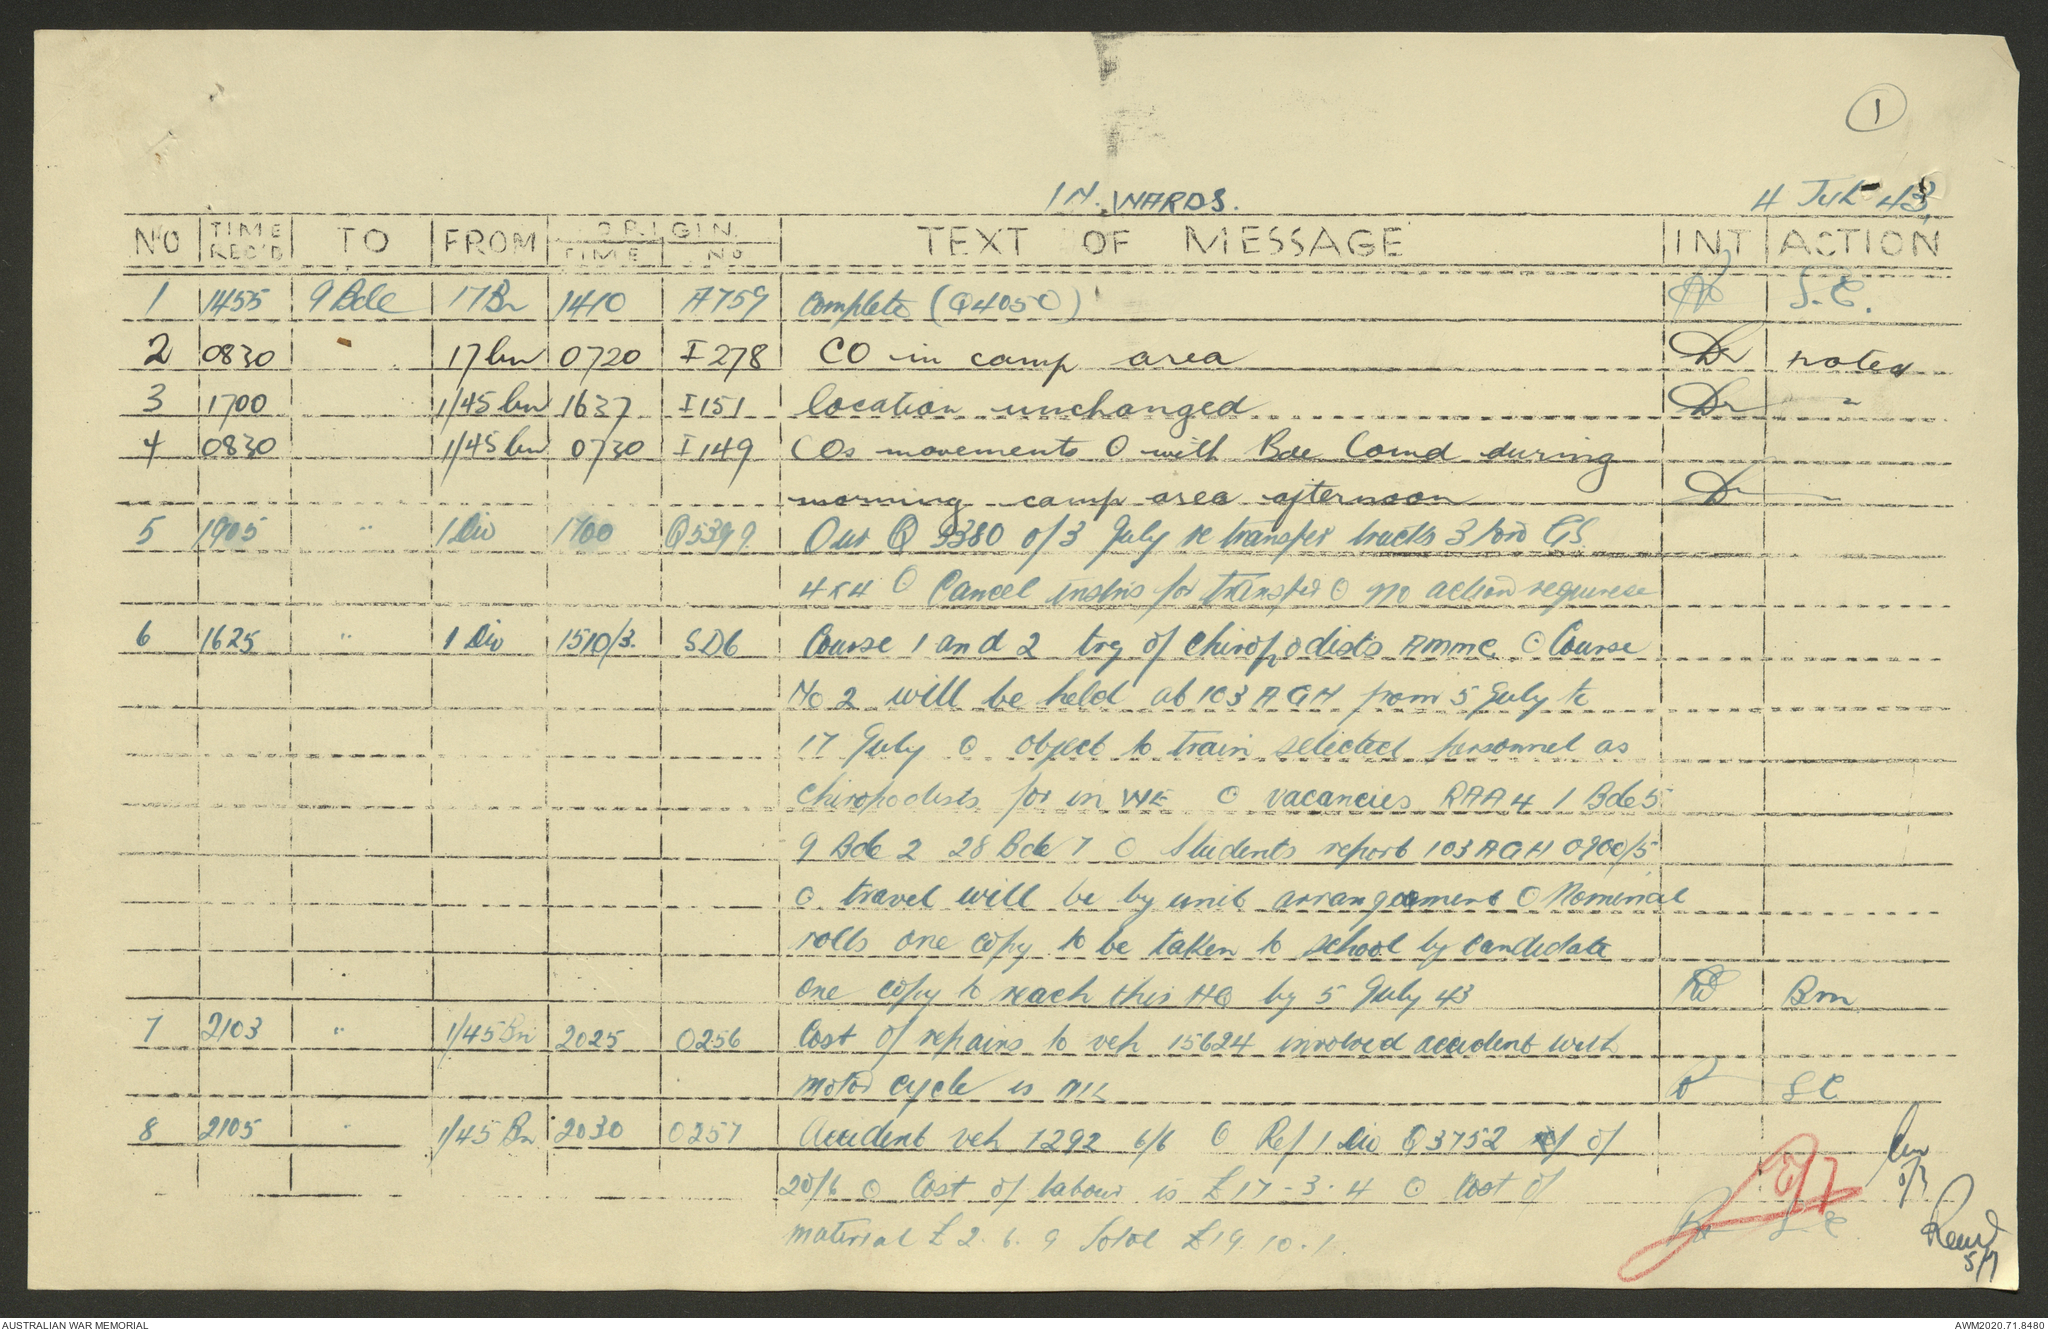 1
IN.WARDS.
4 Jul 43
NO TIME REC'D TO FROM ORIGIN. TIME NO TEXT OF MESSAGE INT ACTION
1 1455 9 Bde 17 Bn 1410 A759 Complete (Q4050) S.C.
2 0830 17 bn 0720 I278 CO in camp area noted
3 1700 1/45 bn 1637 I151 location unchanged "
4 0830 1/45 bn 0730 I149 COs movements O with Bde Comd during
morning camp area afternoon
5 1905 " 1 Div 1700 Q5399. Our Q 5380 of 3 July re transfer trucks 3 ton GS
4x4 O Cancel instns for transfer O no action required
6 1625 " 1 Div 1510/3. SD6 Course 1 and 2 trg of chiropodists AMMC O Course
No 2 will be held at 103 AGH from 5 July to
17 July O object to train selected personnel as
chiropodists for in WE O vacancies RAA 4 1 Bde 5
9 Bde 2 28 Bde 7 O Students report 103 AGH 0900/5
O travel will be by unit arrangement O Nominal
rolls one copy to be taken to school by candidate
one copy to reach this HQ by 5 July 43 Bm
7 2103 " 1/45 Bn 2025 0256 Cost of repairs to veh 15624 involved accident with
motor cycle is NIL SC
8 2105 " 1/45 Bn 2030 0257 Accident veh 7292 6/6 O Ref 1 Div Q3752 of
20/6 O Cost of labour is £17-3-4 O Cost of
material £2.6.9 Total £19.10.1. S.C.
5/7
5/7
AUSTRALIAN WAR MEMORIAL
AWM2020.71.8480